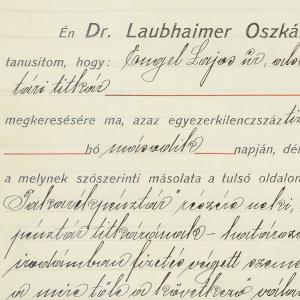 Én Dr. Laubhaimer Oszká
tanusítom, hogy: Engel Lajos úr,
tári titkár
megkeresésére ma, azaz egyezerkilenczszáz ti
hó második napján, dél
a melynek szószerinti másolata a tulsó oldalon
Takarékpénztár" részére neki,
pénztár titkárának – határozo
irodámban fizetés végett szemé
a mire tőle a következő vála